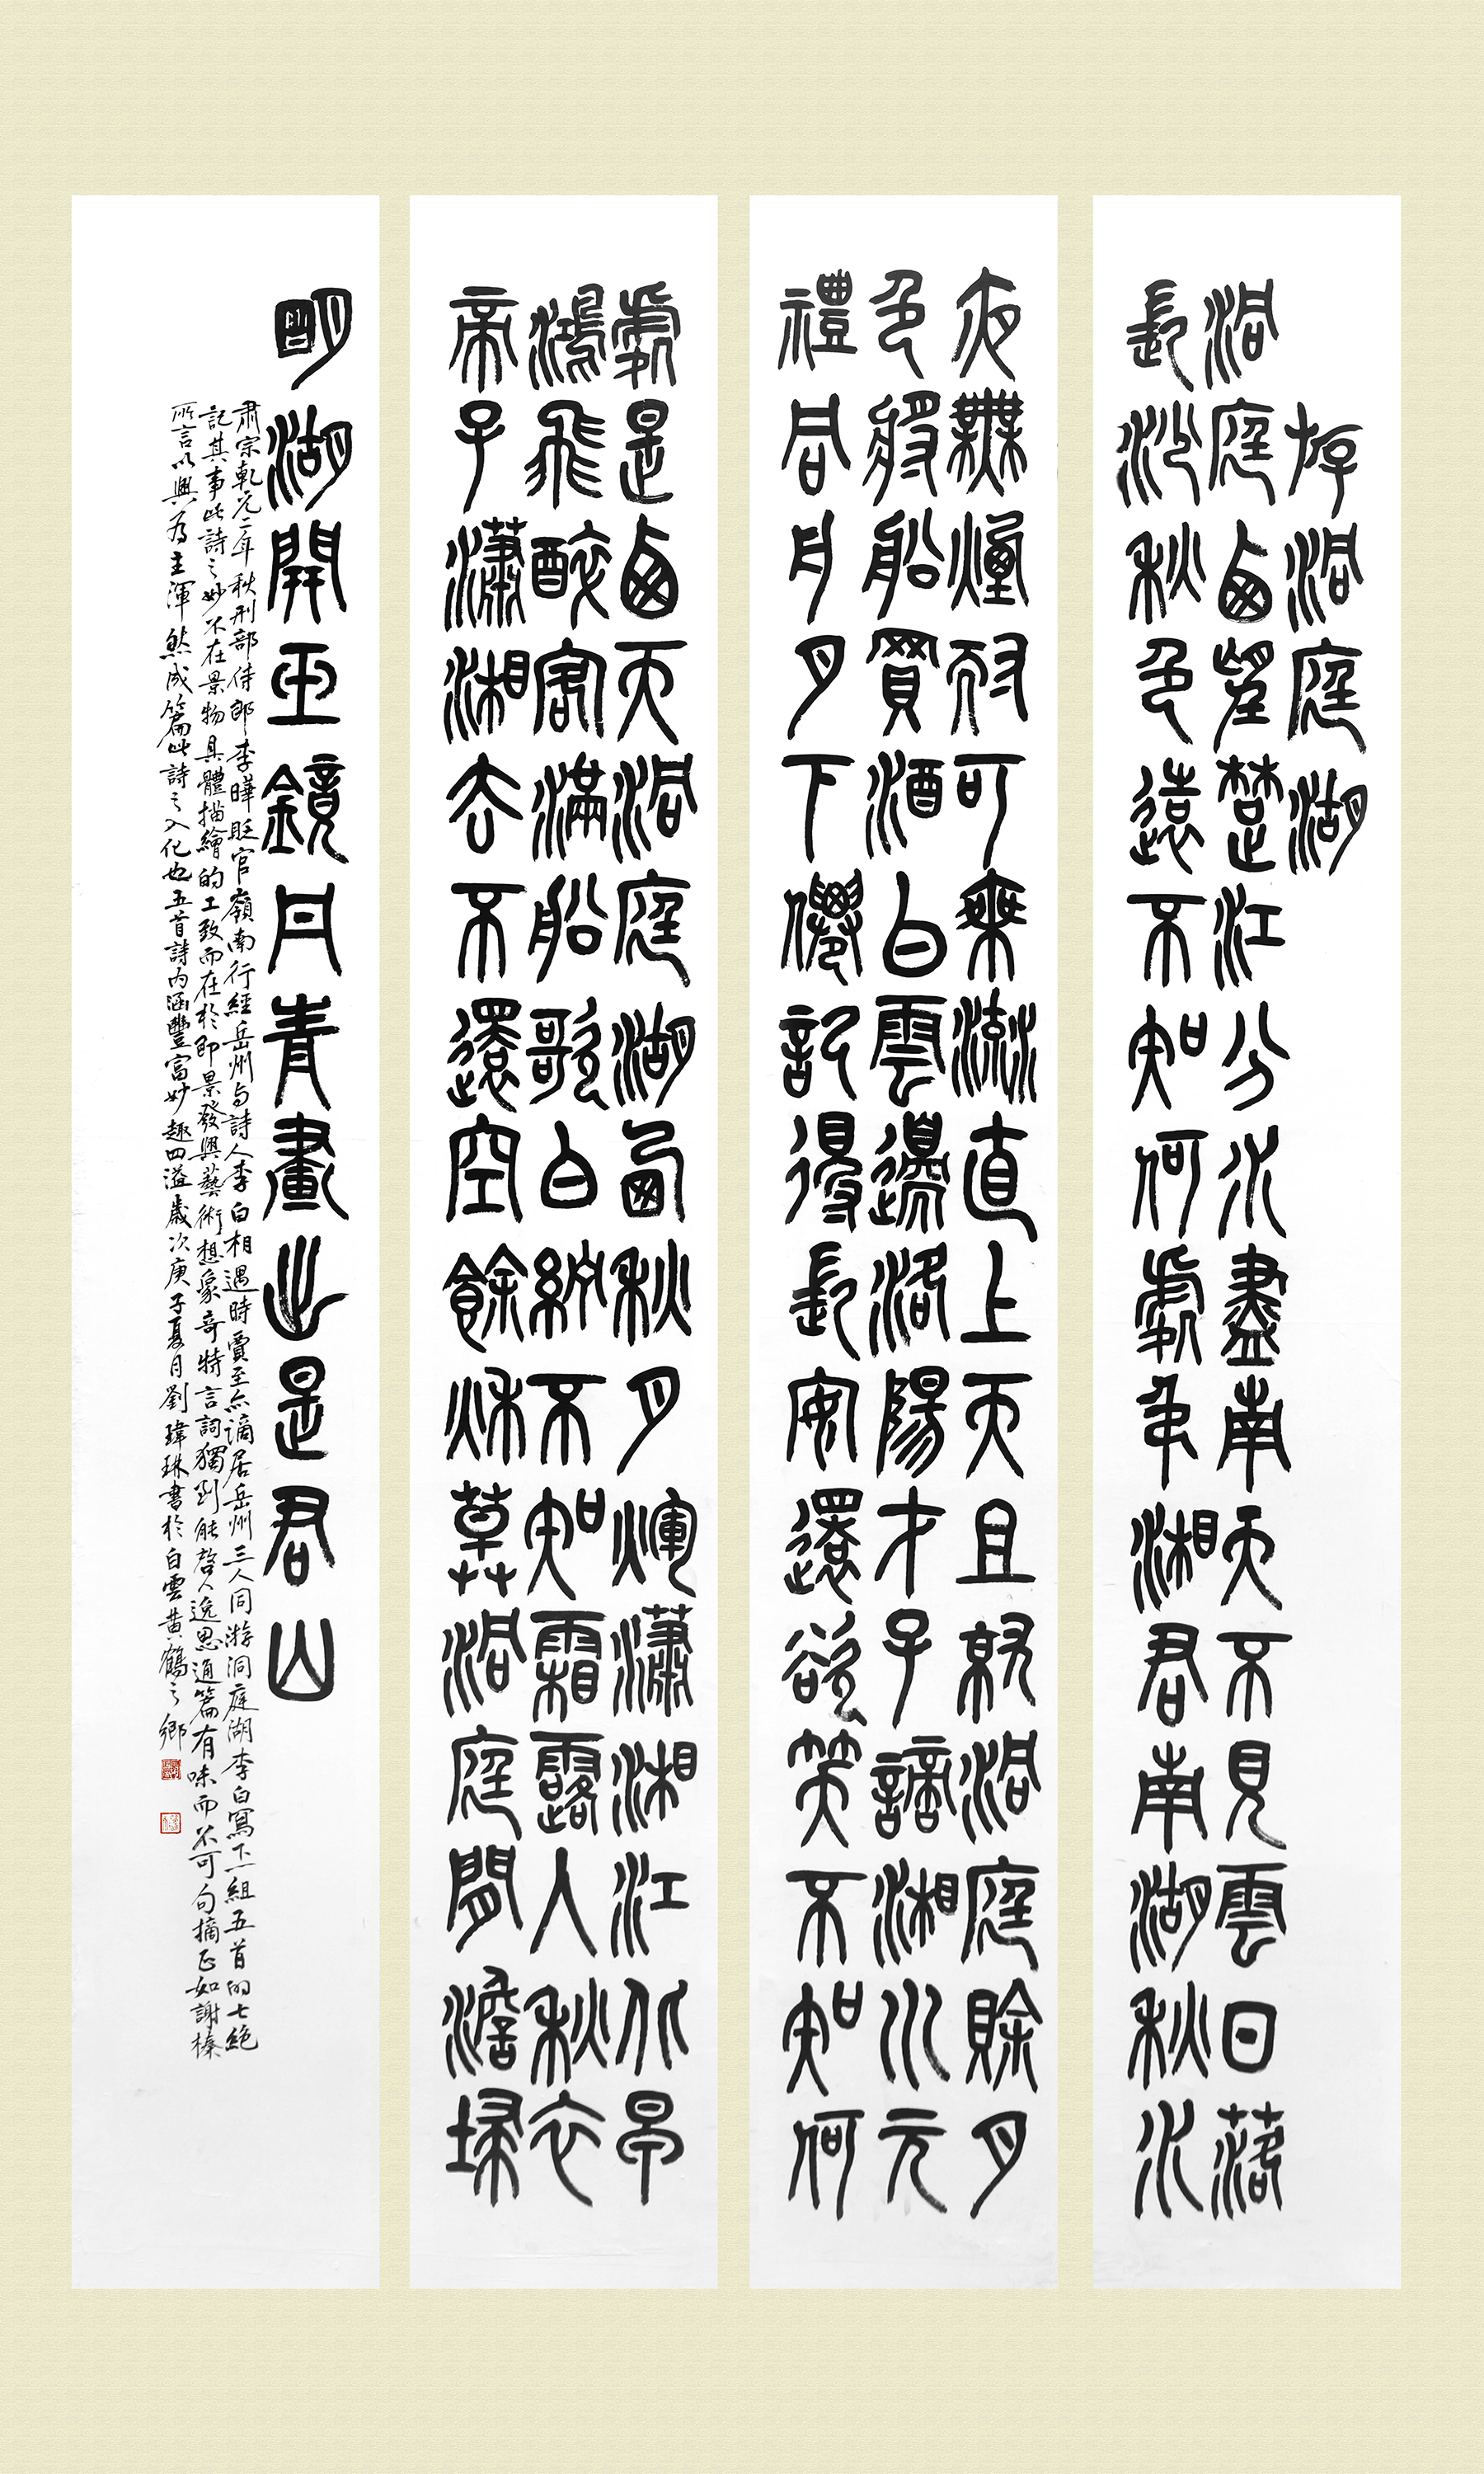 斿洞庭湖
洞庭西望楚江分水盡南天不見雲日落
長沙秋色遠不知何處弔湘君南湖秋水
夜無煙耐可乘流直上天且就洞庭賒月
色將船買酒白雲邊洛陽才子謫湘川元
禮同舟月下僊記得長安還欲笑不知何
處是西天洞庭湖西秋月輝瀟湘江北早
鴻飛醉客滿船歌白紵不知霜露入秋衣
帝子瀟湘去不還空餘秌草洞庭間澹掃
明湖開玉鏡丹青畫出是君山
肅宗乾元二年秋刑部侍郎李曄貶官嶺南行經岳州与詩人李白相遇時賈至亦謫居岳州三人同游洞庭湖李白寫下一組五首的七絕
記其事此詩之妙不在景物具體描繪的工致而在於即景發興藝術想象奇特言詞獨到能啓人逸思通篇有味而不可句摘正如謝榛
所言以興為主渾然成篇此詩之入化也五首詩內涵豐富妙趣四溢歲次庚子夏月劉瑋琳書於白雲黃鶴之鄉